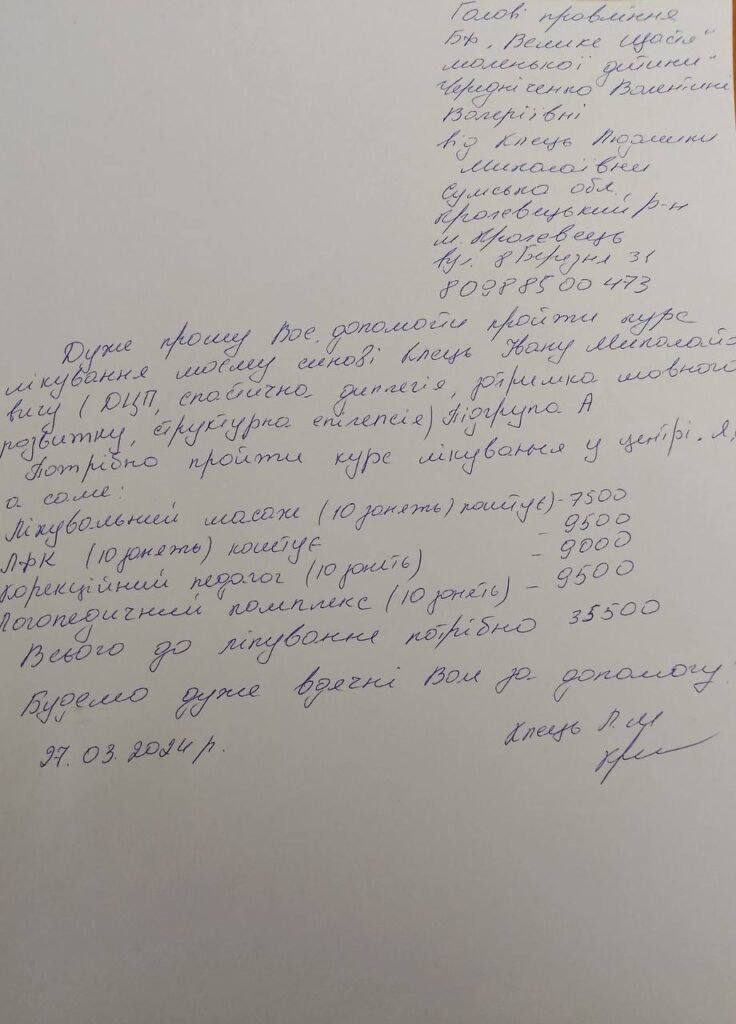 Голові правління
БФ „Велике щастя
маленької дитини"
Чередніченко Валентині
Валеріївні
від Клець Людмили
Миколаївни
Сумська обл.,
Кролевецький р-н
м. Кролевець
вул. 8 Березня 31
80988500473
Дуже прошу Вас допомогти пройти курс
лікування моєму синові Клець Івану Миколайо-
вичу (ДЦП, спастична диплегія, затримка мовного
розвитку, структурна епілепсія) Підгрупа А
Потрібно пройти курс лікування у центрі
а саме:
Лікувальний масаж (10 занять) коштує - 7500
ЛФК (10 занять) коштує - 9500
Корекційний педагог (10 занять) - 9000
Логопедичний комплекс (10 занять) - 9500
Всього до лікування потрібно 35500
Будемо дуже вдячні Вам за допомогу
27.03.2024 р.
Клець Л.М